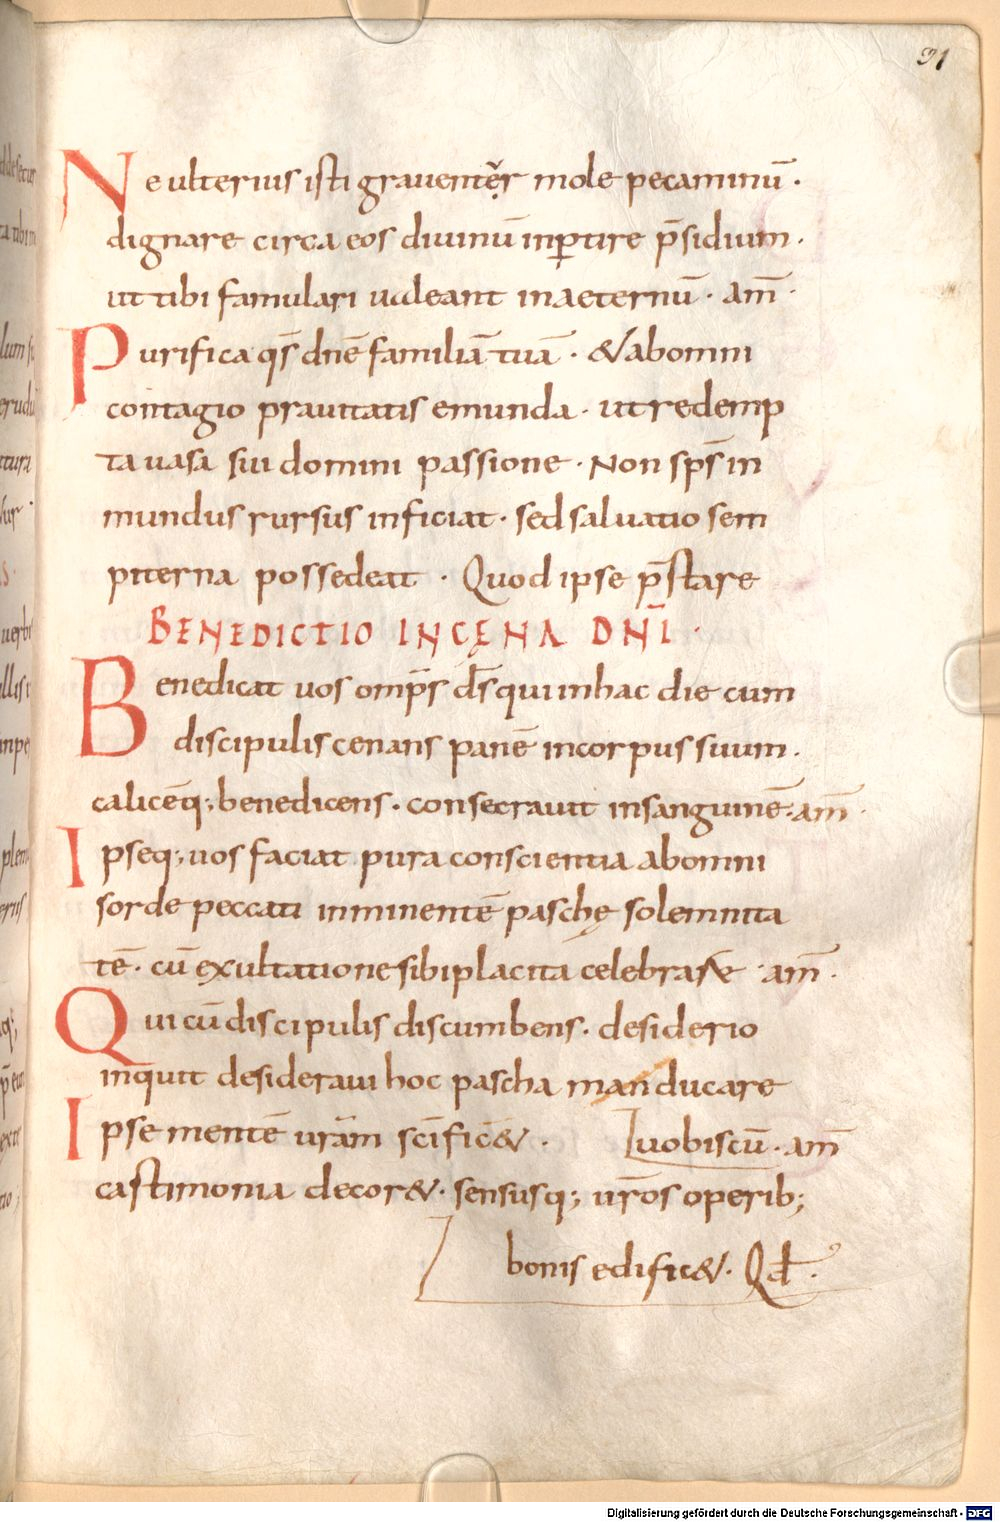 31
Ne ulterius isti grauentẹr mole pecaminū ·
dignare circa eos diuinū inꝑtire p̄sidium ·
ut tibi famulari ualeant inaeternū · am̄ ·
Purifica qs̄ dnē familiā tuā · & abomni
contagio prauitatis emunda · ut redemp
ta uasa sui domini passione · Non sp̄s in
mundus rursus inficiat · sed saluatio sem
piterna possedeat · Quod ipse p̄stare
BENEDICTIO IN CĘNA DN̄I ·
Benedicat uos omp̄s ds̄ qui inhac die cum
discipulis cenans panē incorpus suum ·
calicēq; benedicens · consecrauit insanguinē · am̄ ·
Ipseq; uos faciat pura conscientia abomni
sorde peccati inminentē paschę solemnita
tē · cū exultatione sibi placita celebrare · am̄ ·
Qui cū discipulis discumbens · desiderio
inquit desideraui hoc pascha manducare
Ipse mentē ur̄am sc̄ific& · uobiscū · am̄
castimonia decor& · sensusq; ur̄os operib;
bonis edific& · Qd ·
Digitalisierung gefördert durch die Deutsche Forschungsgemeinschaft - DFG